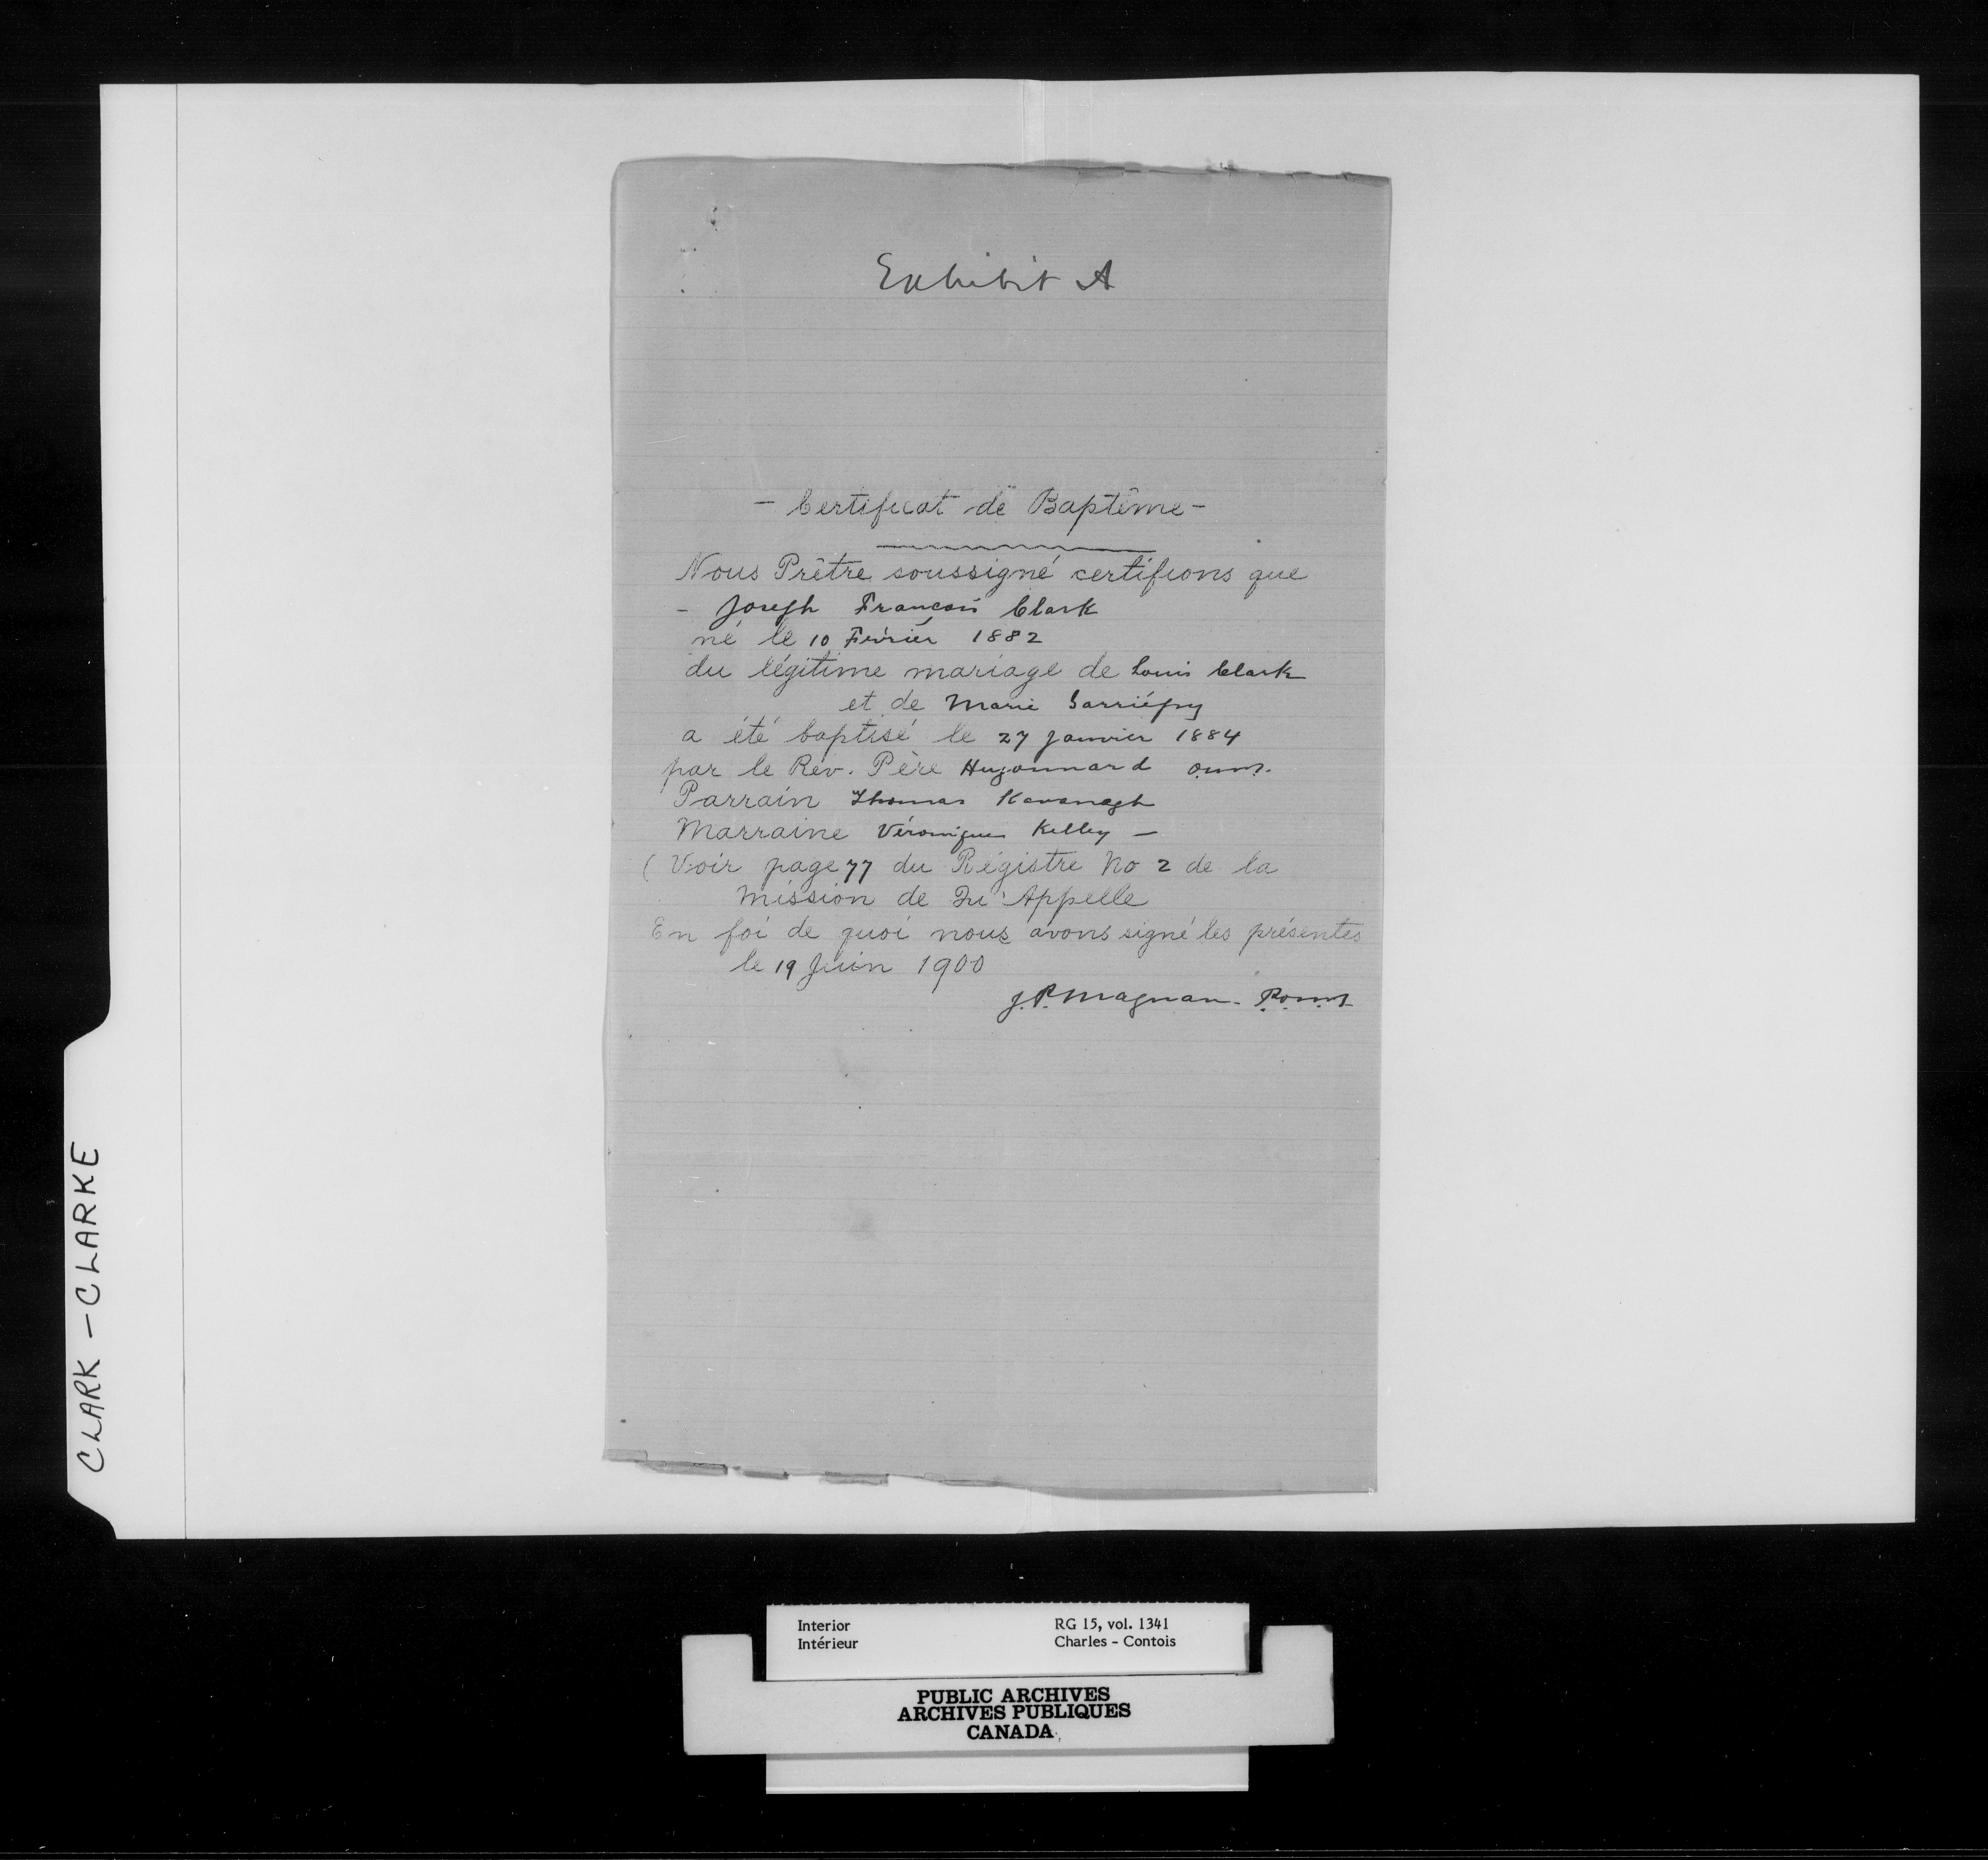 Exhibit A
- Certificat de Baptême -
Nous Prêtre soussigné certifions que
- Joseph Francois Clark
né le 10 Février 1882
du légitime mariage de Louis Clark
et de Marie Garriépy
a été baptisé le 27 Janvier 1884
par le Rév. Père Hugonnard o.m.i.
Parrain Thomas Kavanagh
Marraine Véronique Kelley -
( Voir page 77 du Régistre No 2 de la
Mission de Qu'Appelle
En foi de quoi nous avons signé les présentes
le 19 Juin 1900
J.P. Magnan. P.o.m.i.
CLARK - CLARKE
Interior
Intérieur
RG 15, vol. 1341
Charles - Contois
PUBLIC ARCHIVES
ARCHIVES PUBLIQUES
CANADA